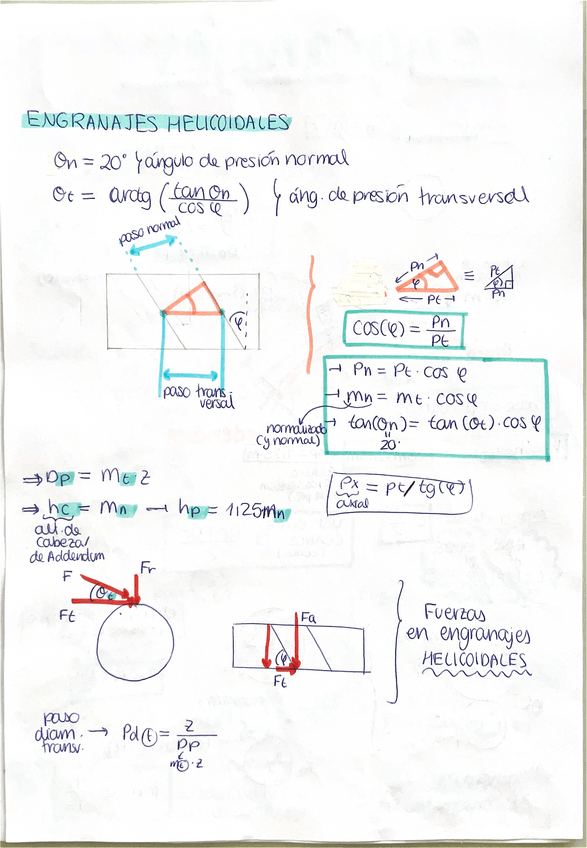 ENGRANAJES HELICOIDALES
θn = 20° ↳ ángulo de presión normal
θt = arctg (tan θn / cos φ) ↳ áng. de presión transversal
paso normal
φ
paso trans
versal
Pn
φ
Pt
≡
Pt
φ
Pn
cos(φ) = Pn / Pt
→ Pn = Pt · cos φ
→ mn = mt · cos φ
→ tan(θn) = tan (θt) · cos φ
20°
normalizado
(y normal)
Px = Pt / tg(φ)
axial
⇒ Dp = mt · z
⇒ hc = mn → hp = 1,25mn
alt. de
cabeza/
de Addendum
F
Fr
θt
Ft
Fa
φ
Ft
Fuerzas
en engranajes
HELICOIDALES
paso
diam.
transv. → Pd(t) = z / Dp
mt · z